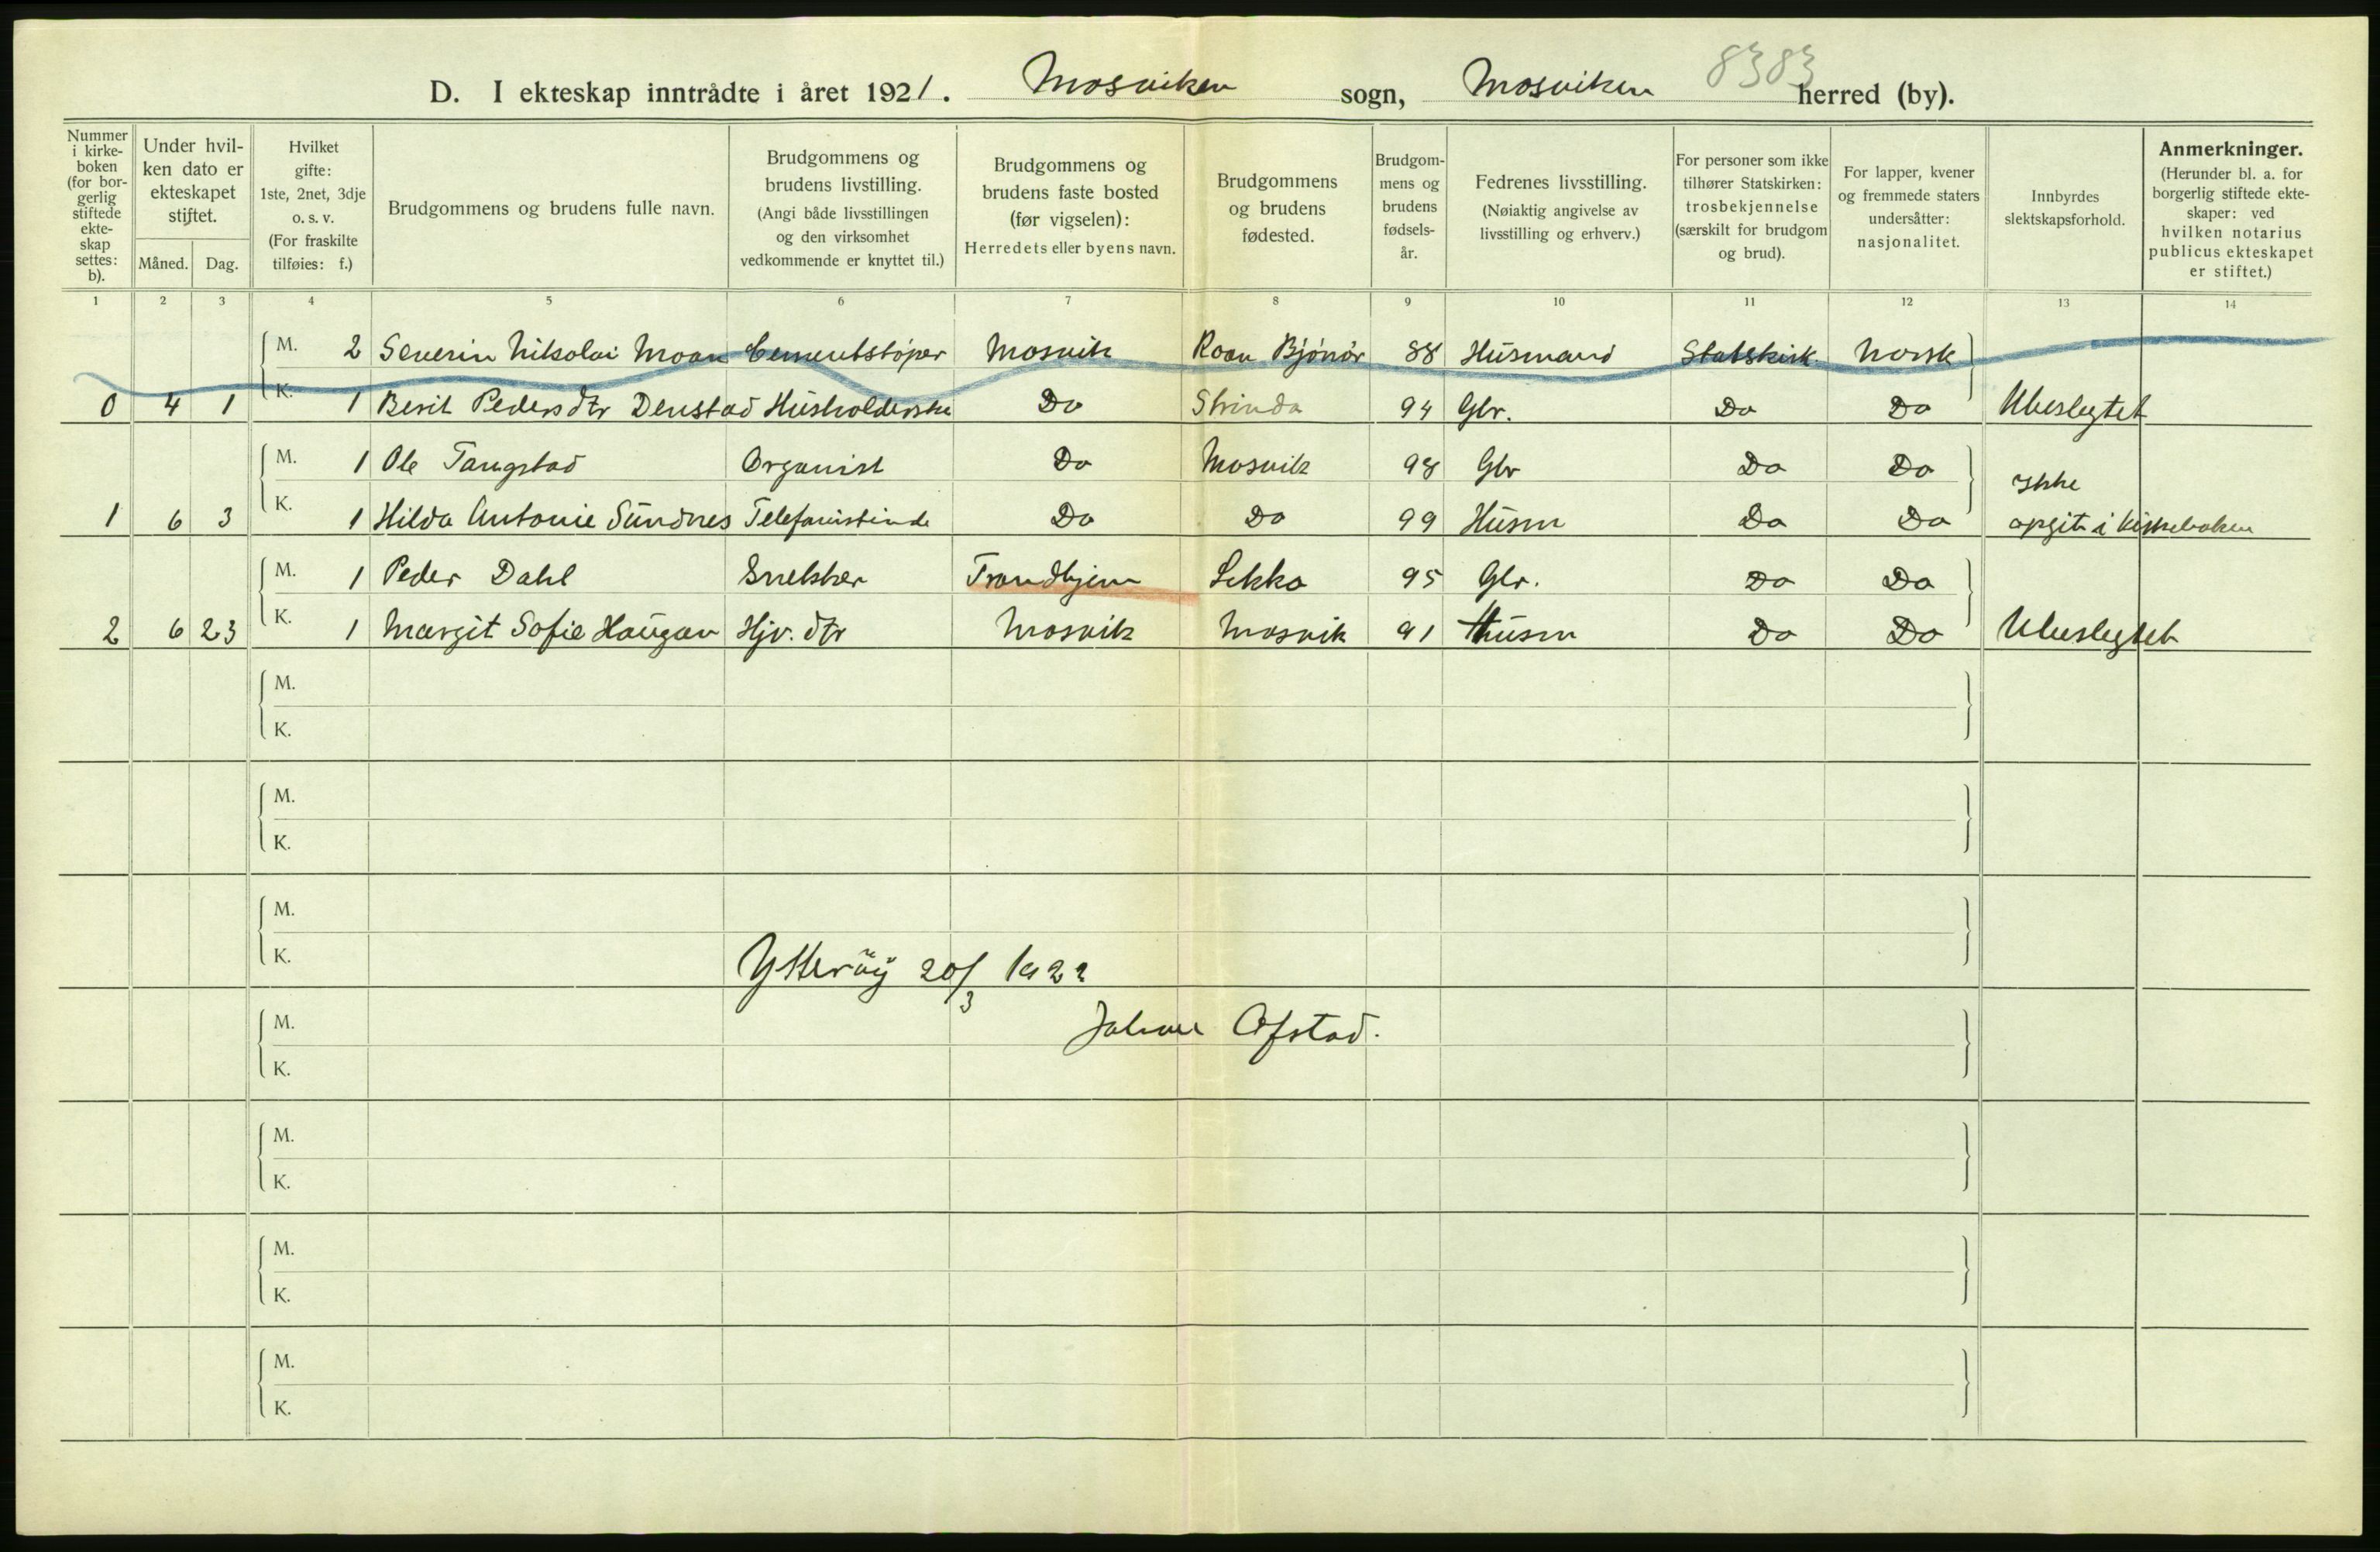 8383
D. I ekteskap inntrådte i året 1921. Mosviken sogn, Mosviken herred (by).
Nummer i kirke-boken (for bor-gerlig stiftede ekte-skap settes: b).
Under hvil-ken dato er ekteskapet stiftet.
Måned. Dag.
Hvilket gifte: 1ste, 2net, 3dje o. s. v. (For fraskilte tilføies: f.)
Brudgommens og brudens fulle navn.
Brudgommens og brudens livstilling. (Angi både livsstillingen og den virksomhet vedkommende er knyttet til.)
Brudgommens og brudens faste bosted (før vigselen): Herredets eller byens navn.
Brudgommens og brudens fødested.
Brudgom-mens og brudens fødsels-år.
Fedrenes livsstilling. (Nøiaktig angivelse av livsstilling og erhverv.)
For personer som ikke tilhører Statskirken: trosbekjennelse (særskilt for brudgom og brud).
For lapper, kvener og fremmede staters undersåtter: nasjonalitet.
Innbyrdes slektskapsforhold.
Anmerkninger. (Herunder bl. a. for borgerlig stiftede ekte-skaper: ved hvilken notarius publicus ekteskapet er stiftet.)
1 2 3 4 5 6 7 8 9 10 11 12 13 14
M. 2 Severin Nikolai Moan Cementstøper Mosvik Roan Bjønør 88 Husmand Statskirk. Norsk
0 4 1 K. 1 Berit Pedersdtr Denstad Husholderske Do Strinda 94 Gbr. Do Do Ubeslegtet
M. 1 Ole Tangstad Organist Do Mosvik 98 Gbr Do Do
Ikke
1 6 3 K. 1 Hilda Antonie Sundnes Telefonistinde Do Do 99 Husm Do Do opgit i kirkeboken
M. 1 Peder Dahl Snekker Trondhjem Lekka 95 Gbr. Do Do
2 6 23 K. 1 Margit Sofie Haugan Hjv. dtr Mosvik Mosvik 91 Husm Do Do Ubeslegtet
M.
K.
M.
K.
M.
K.
Ytterøy 20/3 1922
M.
Johan Afstad.
K.
M.
K.
M.
K.
M.
K.